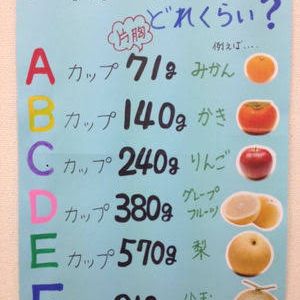 片胸
どれくらい?
例えば....
A カップ 71g みかん
B カップ 140g かき
C カップ 240g りんご
D カップ 380g グレープフルーツ
E カップ 570g 梨